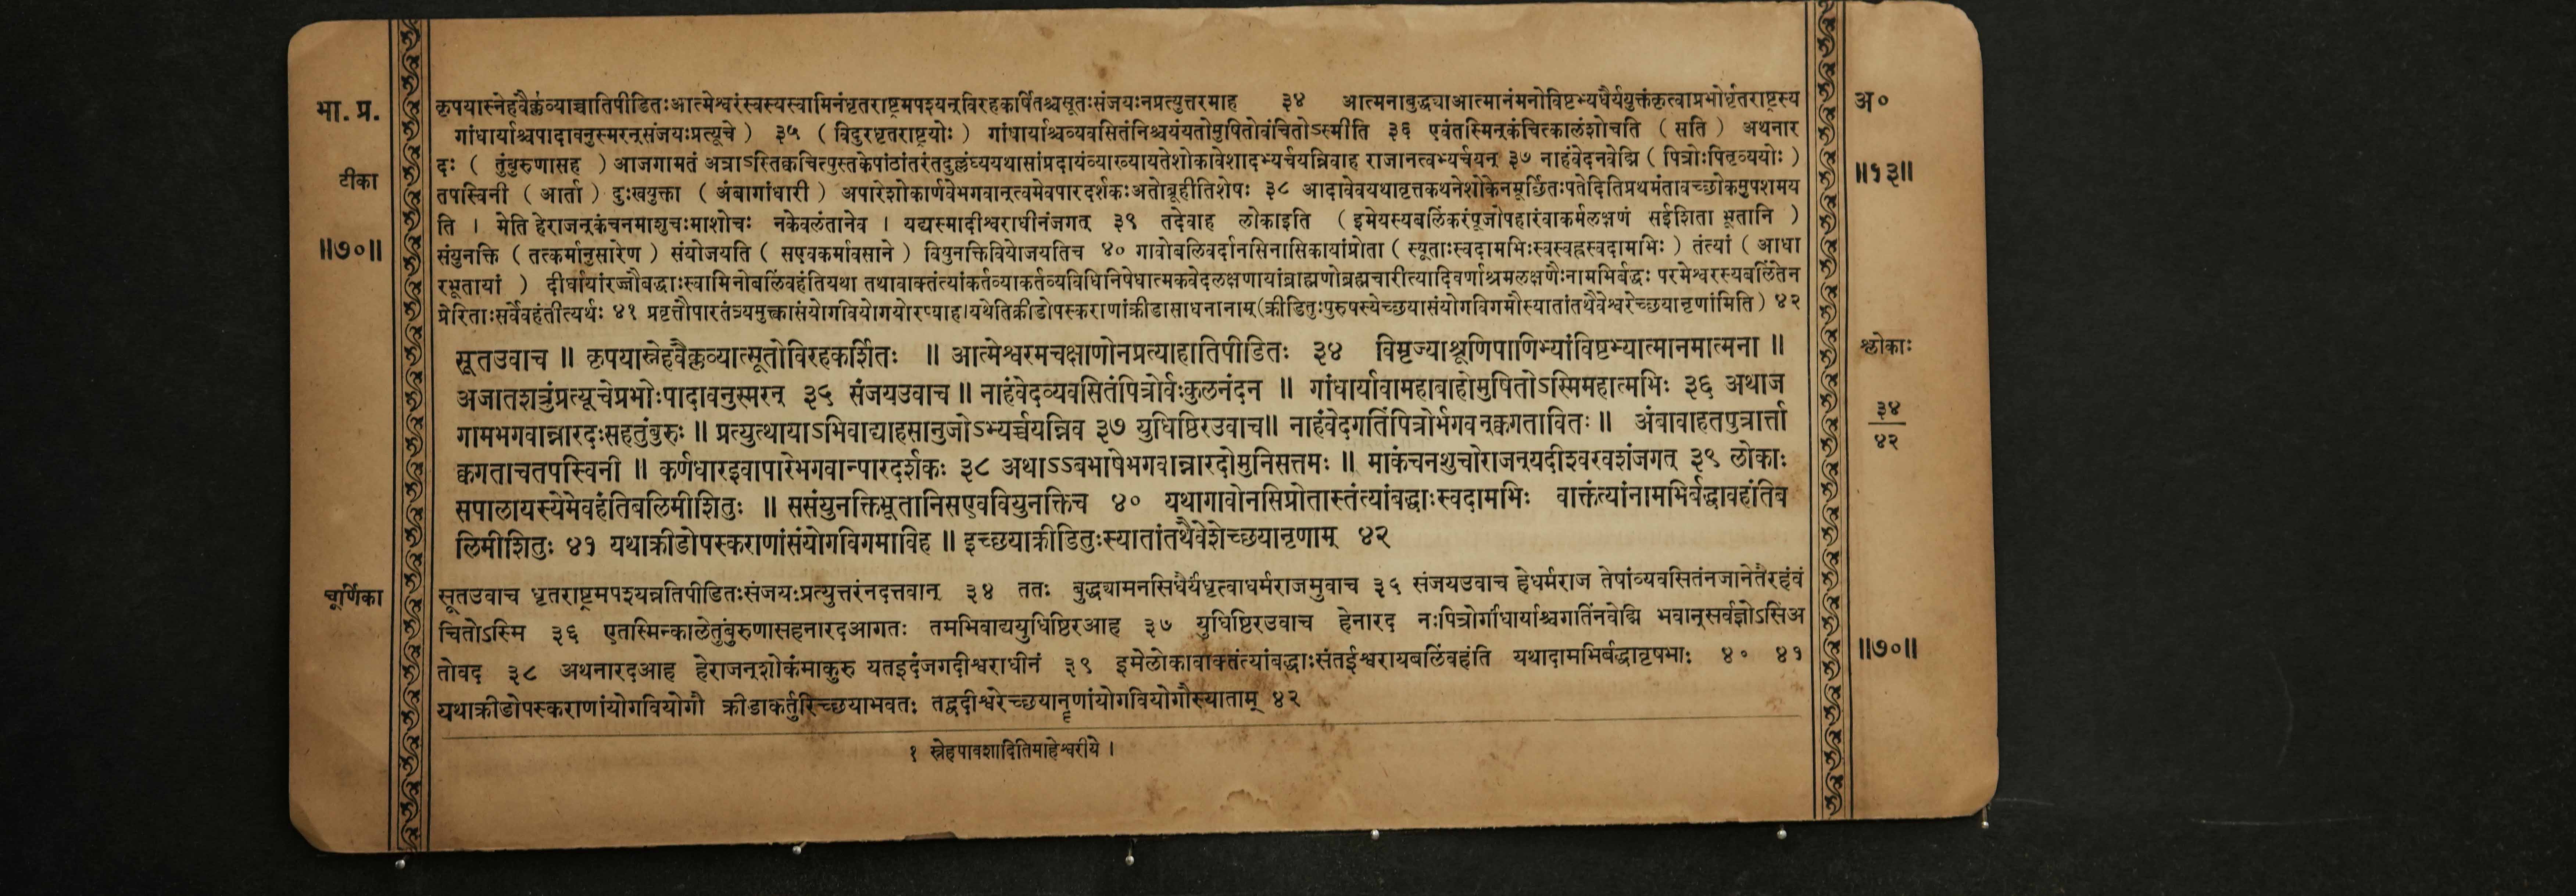 भा. प्र.
टीका
॥७०॥
कृपयास्नेहवैक्लव्याच्चातिपीडितःआत्मेश्वरंस्वस्यस्वामिनंधृतराष्ट्रमपश्यन्विरहकर्षितश्चसूतःसंजयःनप्रत्युत्तरमाह ३४ आत्मनाबुद्ध्याआत्मानंमनोविष्टभ्यधैर्ययुक्तंकृत्वाप्रभोर्धृतराष्ट्रस्य
गांधार्याश्चपादावनुस्मरन्संजयःप्रत्यूचे ) ३५ ( विदुरधृतराष्ट्रयोः ) गांधार्याश्चव्यवसितंनिश्चयंयतोमुषितोवंचितोऽस्मीति ३६ एवंतस्मिन्कंचित्कालंशोचति ( सति ) अथनार
दः ( तुंबुरुणासह ) आजगामतं अत्राऽस्तिक्वचित्पुस्तकेपाठांतरंतदुल्लंघ्ययथासांप्रदायंव्याख्यायतेशोकावेशादभ्यर्चयन्निवाह राजानत्वभ्यर्चयन् ३७ नाहंवेदनवेद्मि ( पित्रोःपितृव्ययोः )
तपस्विनी ( आर्ता ) दुःखयुक्ता ( अंबागांधारी ) अपारेशोकार्णवेभगवान्त्वमेवपारदर्शकःअतोब्रूहीतिशेषः ३८ आदावेवयथावृत्तकथनेशोकेनमूर्छितःपतेदितिप्रथमंतावच्छोकमुपशमय
ति । मेति हेराजन्कंचनमाशुचःमाशोचः नकेवलंतानेव । यद्यस्मादीश्वराधीनंजगत् ३९ तदेवाह लोकाइति ( इमेयस्यबलिंकरंपूजोपहारंवाकर्मलक्षणं सईशिता भूतानि )
संयुनक्ति ( तत्कर्मानुसारेण ) संयोजयति ( सएवकर्मावसाने ) वियुनक्तिवियोजयतिच ४० गावोबलिवर्दानसिनासिकायांप्रोता ( स्यूताःस्वदामभिःस्वस्वह्रस्वदामभिः ) तंत्यां ( आधा
रभूतायां ) दीर्घायांरज्जौबद्धाःस्वामिनोबलिंवहंतियथा तथावाक्तंत्यांकर्तव्याकर्तव्यविधिनिषेधात्मकवेदलक्षणायांब्राह्मणोब्रह्मचारीत्यादिवर्णाश्रमलक्षणैःनामभिर्बद्धः परमेश्वरस्यबलिंतेन
प्रेरिताःसर्वेवहंतीत्यर्थः ४१ प्रवृत्तौपारतंत्र्यमुक्त्वासंयोगवियोगयोरप्याह।यथेतिक्रीडोपस्कराणांक्रीडासाधनानाम्(क्रीडितुःपुरुषस्येच्छयासंयोगविगमौस्यातांतथैवेश्वरेच्छयानृणांमिति ) ४२
सूतउवाच ॥ कृपयास्नेहवैक्लव्यात्सूतोविरहकर्शितः ॥ आत्मेश्वरमचक्षाणोनप्रत्याहातिपीडितः ३४ विमृज्याश्रूणिपाणिभ्यांविष्टभ्यात्मानमात्मना ॥
अजातशत्रुंप्रत्यूचेप्रभोःपादावनुस्मरन् ३५ संजयउवाच ॥ नाहंवेदव्यवसितंपित्रोर्वःकुलनंदन ॥ गांधार्यावामहाबाहोमुषितोऽस्मिमहात्मभिः ३६ अथाज
गामभगवान्नारदःसहतुंबुरुः ॥ प्रत्युत्थायाऽभिवाद्याहसानुजोऽभ्यर्च्चयन्निव ३७ युधिष्ठिरउवाच॥ नाहंवेदगतिंपित्रोर्भगवन्क्वगतावितः ॥ अंबावाहतपुत्रार्त्ता
क्वगताचतपस्विनी ॥ कर्णधारइवापारेभगवान्पारदर्शकः ३८ अथाऽऽबभाषेभगवान्नारदोमुनिसत्तमः ॥ माकंचनशुचोराजन्यदीश्वरवशंजगत् ३९ लोकाः
सपालायस्येमेवहंतिबलिमीशितुः ॥ ससंयुनक्तिभूतानिसएववियुनक्तिच ४० यथागावोनसिप्रोतास्तंत्यांबद्धाःस्वदामभिः वाक्तंत्यांनामभिर्बद्धावहंतिब
लिमीशितुः ४१ यथाक्रीडोपस्कराणांसंयोगविगमाविह ॥ इच्छयाक्रीडितुःस्यातांतथैवेशेच्छयानृणाम् ४२
चूर्णिका
सूतउवाच धृतराष्ट्रमपश्यन्नतिपीडितःसंजयःप्रत्युत्तरंनदत्तवान् ३४ ततः बुद्ध्यामनसिधैर्यंधृत्वाधर्मराजमुवाच ३५ संजयउवाच हेधर्मराज तेषांव्यवसितंनजानेतैरहंवं
चितोऽस्मि ३६ एतस्मिन्कालेतुंबुरुणासहनारदआगतः तमभिवाद्ययुधिष्ठिरआह ३७ युधिष्ठिरउवाच हेनारद नःपित्रोर्गांधार्याश्चगतिंनवेद्मि भवान्सर्वज्ञोऽसिअ
तोवद ३८ अथनारदआह हेराजन्शोकंमाकुरु यतइदंजगदीश्वराधीनं ३९ इमेलोकावाक्तंत्यांबद्धाःसंतईश्वरायबलिंवहंति यथादामभिर्बद्धावृषभाः ४० ४१
यथाक्रीडोपस्कराणांयोगवियोगौ क्रीडाकर्तुरिच्छयाभवतः तद्वदीश्वरेच्छयानॄणांयोगवियोगौस्याताम् ४२
१ स्नेहपावशादितिमाहेश्वरीये ।
अ०
॥१३॥
श्लोकाः
३४
४२
॥७०॥